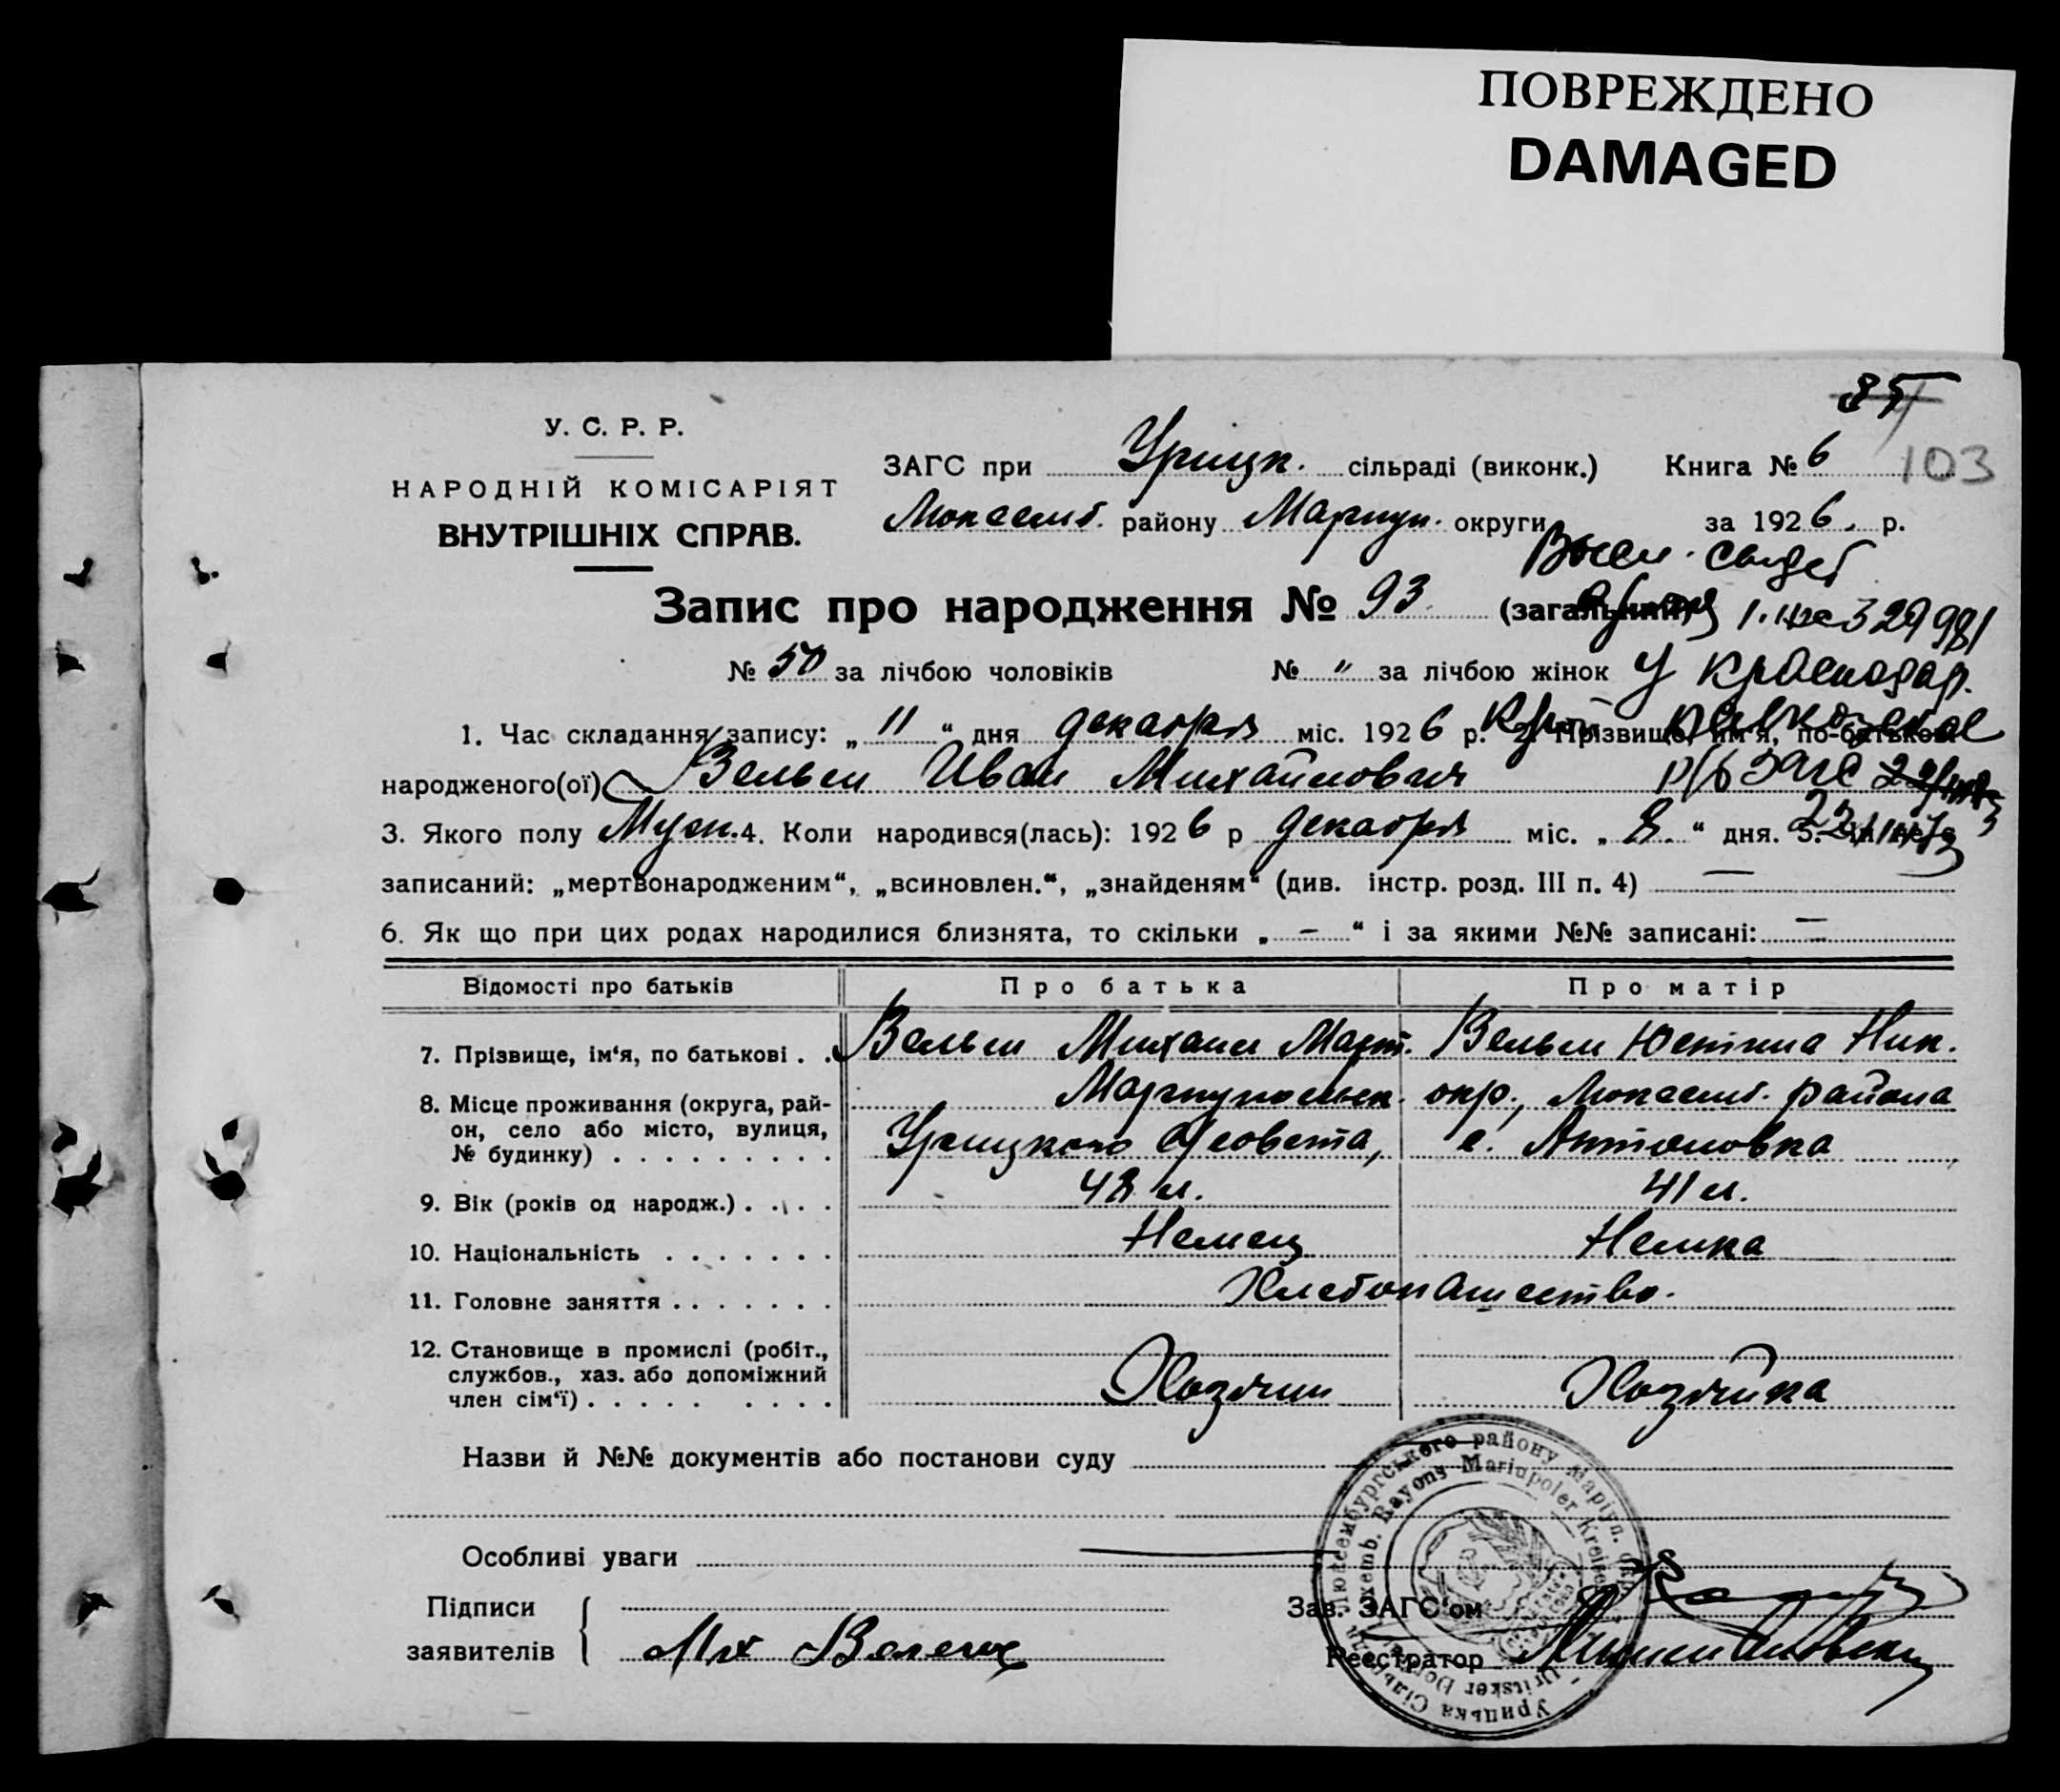 ПОВРЕЖДЕНО
DAMAGED
85
103
У. С. Р. Р.
НАРОДНІЙ КОМІСАРІЯТ
ВНУТРІШНІХ СПРАВ.
ЗАГС при Урицк. сільраді (виконк.) Книга № 6
Люксемб. району Мариуп. округи за 1926 р.
Запис про народження № 93 (загальний)
329981
№ 50 за лічбою чоловіків № " за лічбою жінок
у Краснодар.
1. Час складання запису: „ 11 “ дня декабря міс. 1926 р. 2. Прізвище, ім'я, по-батькові
народженого(ої) Вельш Иван Михайлович
р/б ЗАГС
3. Якого полу Муж. 4. Коли народився(лась): 1926 р декабря міс. „ 8 “ дня. 5.
записаний: „мертвонародженим“, „всиновлен.“, „знайденям“ (див. інстр. розд. III п. 4) —
6. Як що при цих родах народилися близнята, то скільки „ – “ і за якими №№ записані: —
Відомості про батьків Про батька Про матір
7. Прізвище, ім‘я, по батькові . . Вельш Михаил Март. Вельш Юстина Ник.
8. Місце проживання (округа, рай-
он, село або місто, вулиця,
№ будинку) . . . . . . . . .
Мариупольск. окр., Люксемб. района
Урицкого С/совета, с. Антоновка
9. Вік (років од народж.) . . . . 48 л. 41 л.
10. Національність . . . . . . . Немец Немка
11. Головне заняття . . . . . . . Хлебопашество.
12. Становище в промислі (робіт.,
службов., хаз. або допоміжний
член сім‘ї) . . . . . . . . .
Хозяин Хозяйка
Назви й №№ документів або постанови суду
Особливі уваги
Підписи
заявителів
Зав. ЗАГС‘ом
Реєстратор
Люксембургського району Маріуп. окр.
Luxemb. Rayons Mariupoler Kreises
Урицька Сільська
Uritsker